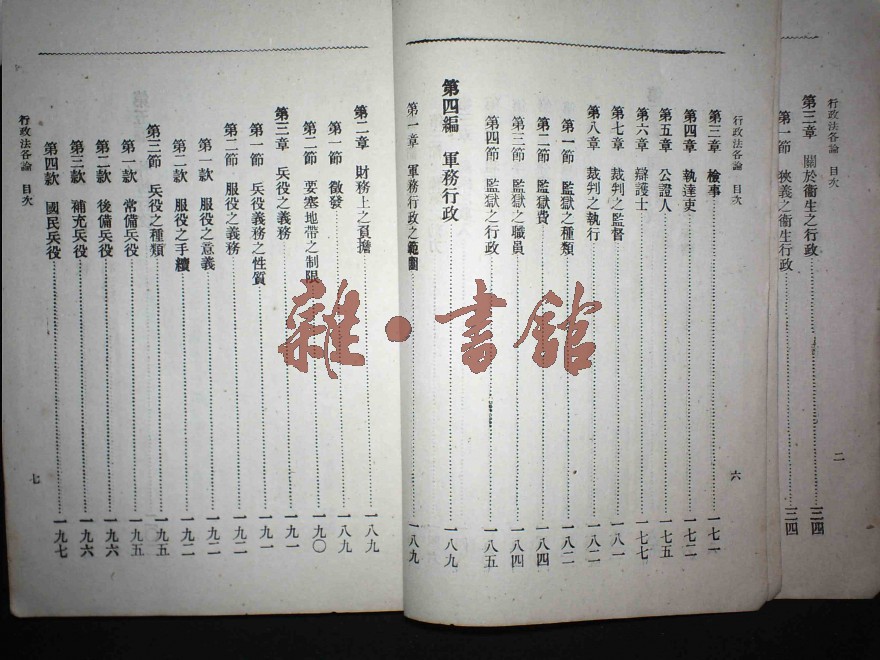 行政法各論 目次
第三章 關於衞生之行政 三四
第一節 狹義之衞生行政 三四
二
行政法各論 目次
第三章 檢事 一七一
第四章 執達吏 一七二
第五章 公證人 一七五
第六章 辯護士 一七七
第七章 裁判之監督 一八一
第八章 裁判之執行 一八二
第一節 監獄之種類 一八二
第二節 監獄費 一八四
第三節 監獄之職員 一八四
第四節 監獄之行政 一八五
第四編 軍務行政 一八九
第一章 軍務行政之範圍 一八九
六
第二章 財務上之負擔 一八九
第一節 徵發 一八九
第二節 要塞地帶之制限 一九〇
第三章 兵役之義務 一九一
第一節 兵役義務之性質 一九一
第二節 服役之義務 一九二
第一款 服役之意義 一九二
第二款 服役之手續 一九二
第三節 兵役之種類 一九五
第一款 常備兵役 一九五
第二款 後備兵役 一九六
第三款 補充兵役 一九六
第四款 國民兵役 一九七
行政法各論 目次
七
雜·書館